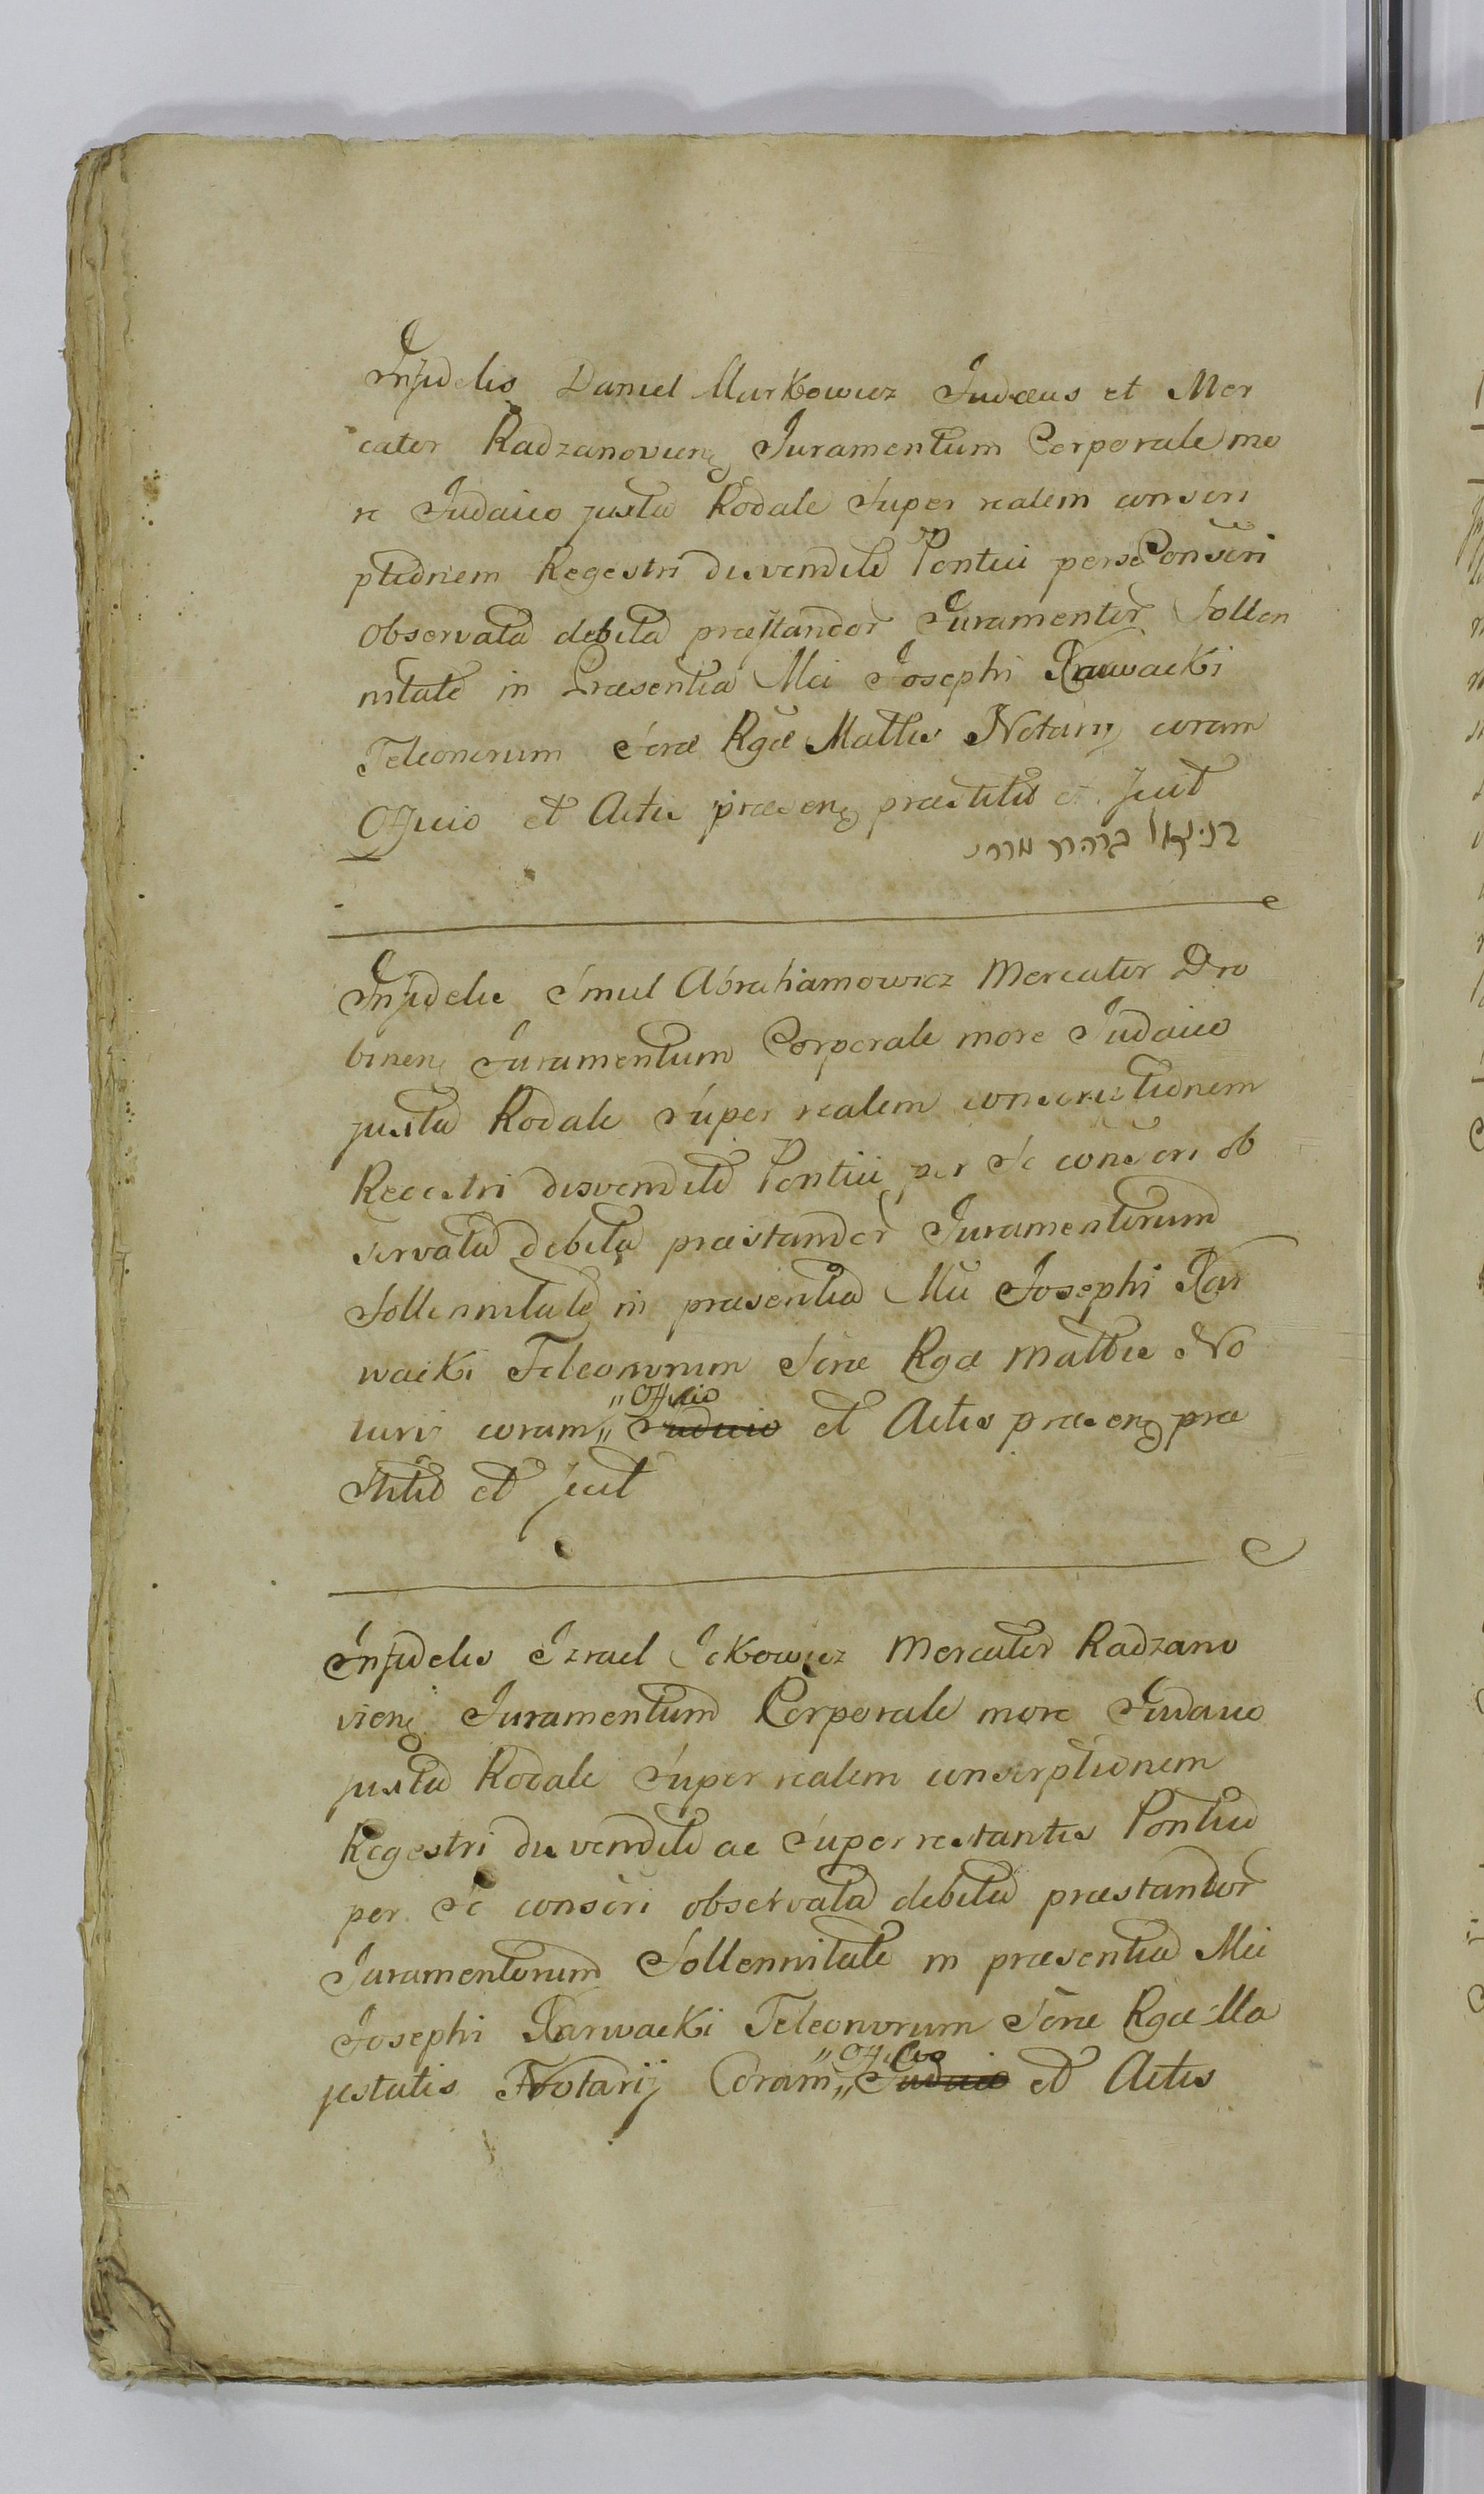 Infidelis Daniel Markowicz Judaeus et Mer
cator Radzanoviens Juramentum Corporale mo
re Judaico juxta Rodale Super realem conscri
ptionem Regestri disvenditi Pontici per se Conscri
observata debita praestandor Juramentor Sollen
nitate in Praesentia Mei Josephi Karwacki
Teleonorum Scrae Rgae Mattis Notarij coram
Officio et Actis praesens praestitit et fecit
דניאל בהרר מרדכי
Infidelis Smul Abrahamowicz Mercator Dro
binens Juramentum Corporale more Judaico
juxta Rodale Super realem conscriptionem
Regestri disvenditi Pontici per Se conscri ob
servata debita praestandor Juramentorum
Sollennitate in praesentia Mei Josephi Kar
wacki Teleonorum Scrae Rgae Mattis No
tarij coram „ Judicio et Actis praesens prae
„ Officio
stitit et fecit
Infidelis Izrael Ickowicz Mercator Radzano
viens Juramentum Corporale more Judaico
juxta Rodale Super realem conscriptionem
Regestri disvenditi ac Superrestantis Pontici
per Se conscri observata debita praestandor
Juramentorum Sollennitate in praesentia Mei
Josephi Karwacki Teleonorum Scrae Rgae Ma
jestatis Notarij Coram „ Judicio et Actis
„ Officio